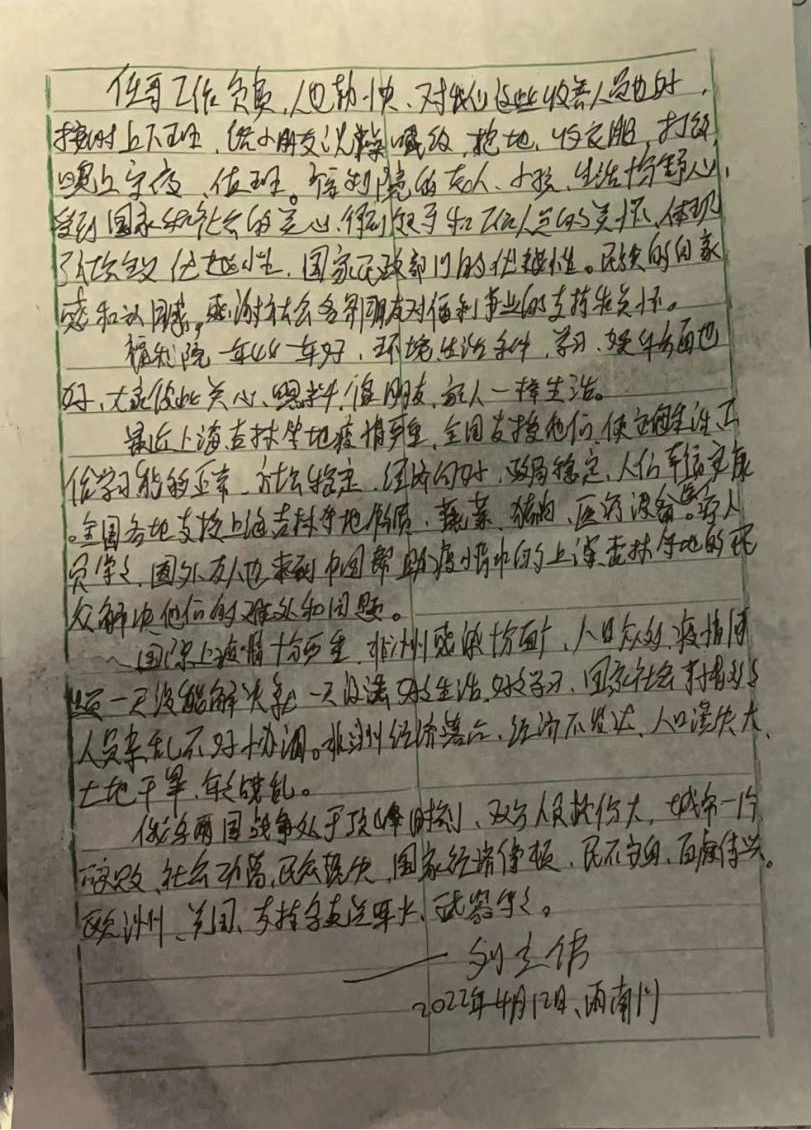 任哥工作负责,人也勤快、对我们这些收养人员也好,
按时上下班,给小朋友洗澡喂饭,拖地,收衣服,打饭,
晚上守夜、值班。福利院的老人、小孩、生活十分舒心,
受到国家和社会的关心,得到领导和工作人员的关怀、体现
了社会主义优越性,国家民政部门的优越性。民族的自豪
感和认同感,感谢社会各界朋友对福利事业的支持和关怀。
福利院一年比一年好,环境,生活条件,学习、娱乐方面也
好、大家彼此关心、照料,像朋友,家人一样生活。
最近上海吉林等地疫情严重,全国支援他们,使它们生活工
作学习能够正常,社会稳定,经济向好,政局稳定,人们幸福安康
。全国各地支援上海吉林等地物质,蔬菜,猪肉,医疗设备。医疗人
员等等,国外友人也来到中国帮助疫情中的上海吉林等地的民
众解决他们的难处和问题。
国际上疫情十分严重,非洲感染十分面广,人口众多,疫情问
题一天没能解决就一天没法好好生活,好好学习,国家社会
人员杂乱不好协调。非洲经济落后,经济不发达,人口流失大、
土地干旱,年年战乱。
俄乌两国战争处于顶峰时刻、双方人员伤亡大,城市一片
废墟,社会动荡,民众流失,国家经济停顿,民不安身,百废待兴。
欧洲、美国、支持乌克兰军火、武器等等。
——刘立伟
2022年4月12日、雨南川